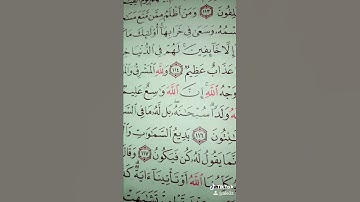 ـلِفُونَ ١١٣ وَمَنْ أَظْلَمُ مِمَّن مَّنَعَ مَسَـ
ـمُهُۥ وَسَعَىٰ فِى خَرَابِهَآ أُو۟لَٰٓئِكَ مَا
إِلَّا خَآئِفِينَ لَهُمْ فِى ٱلدُّنْيَا خِـ
عَذَابٌ عَظِيمٌ ١١٤ وَلِلَّهِ ٱلْمَشْرِقُ وَٱلْمَـ
وَجْهُ ٱللَّهِ إِنَّ ٱللَّهَ وَٰسِعٌ عَلِيـ
ـهُ وَلَدًا سُبْحَٰنَهُۥ بَل لَّهُۥ مَا فِى ٱلسَّـ
ـٰنِتُونَ ١١٦ بَدِيعُ ٱلسَّمَٰوَٰتِ وَٱ
ـنَّمَا يَقُولُ لَهُۥ كُن فَيَكُونُ ١١٧ وَقَالَ
ـلِّمُنَا ٱللَّهُ أَوْ تَأْتِينَآ ءَايَةٌ كَ
تَشَٰبَهَتْ
TikTok